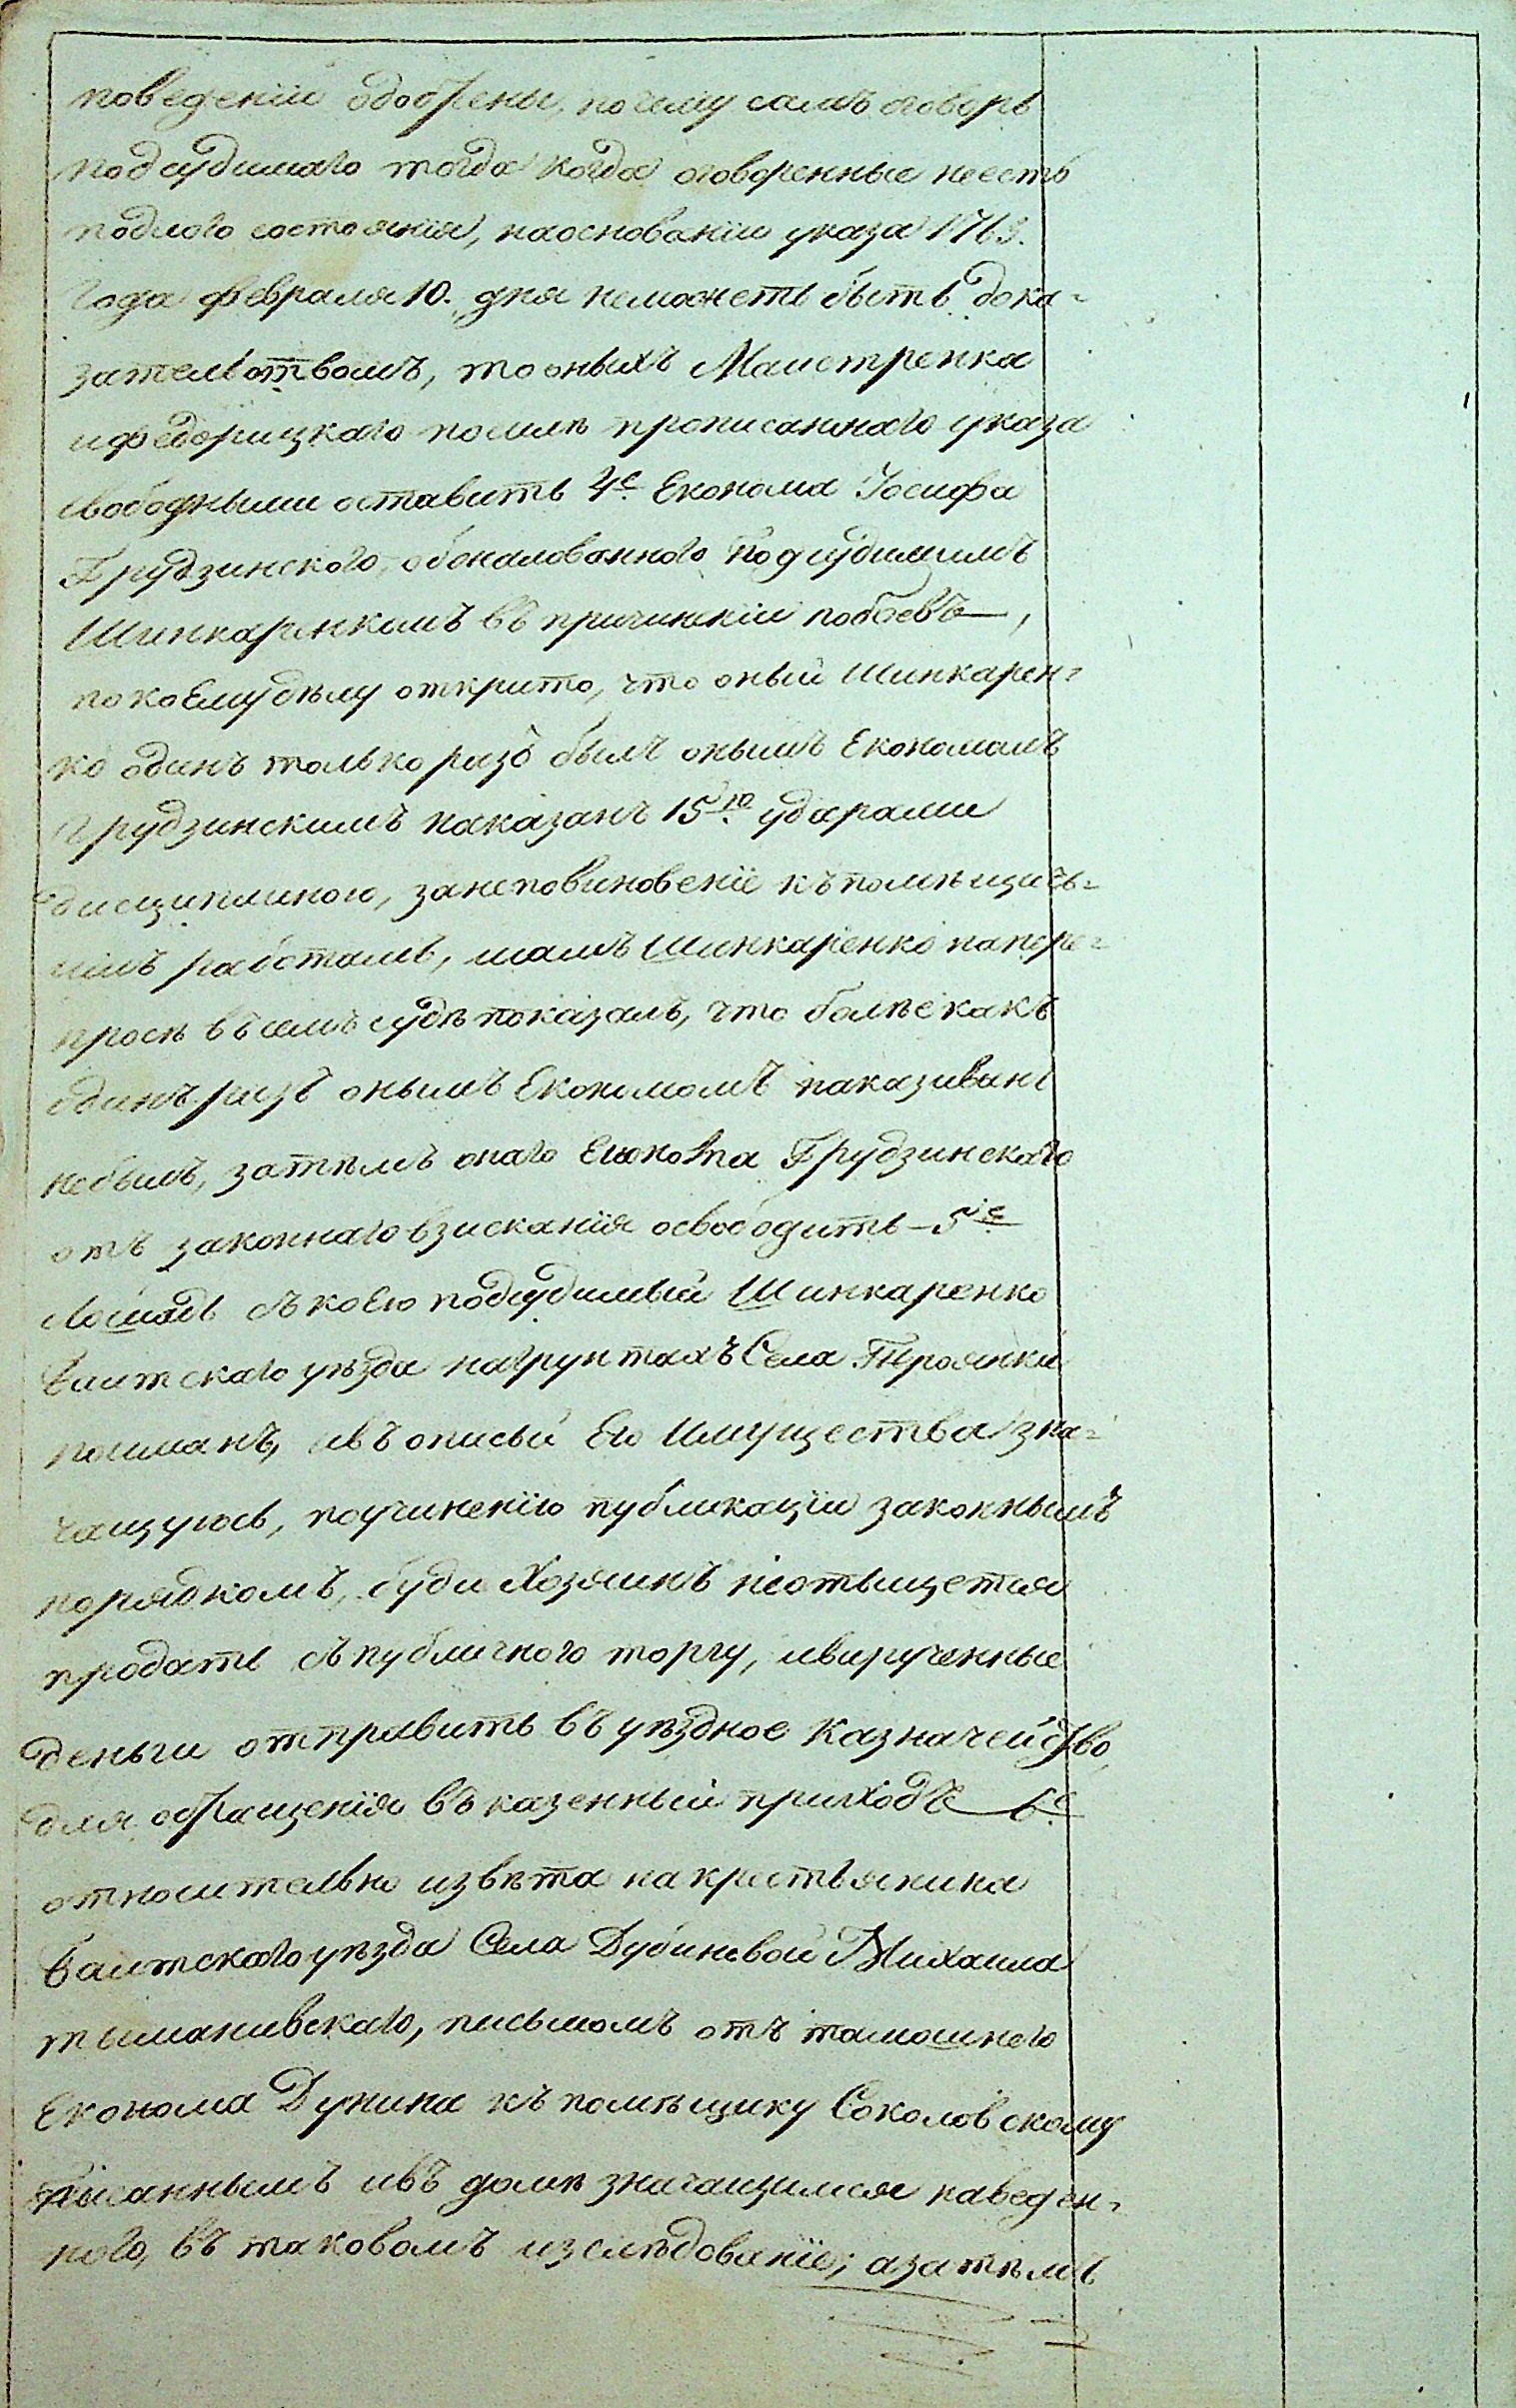 поведеніи одобрены, почему самъ оговоръ
подсудимаго тогда когда оговоренные неесть
подлого состоянія, наоснованіи указа 1763.
года февраля 10. дня неможетъ быть дока=
зательствомъ, то оныхъ Маистренка
ифедорицкаго посилѣ прописаннаго указа
свободными оставить 4е. Економа Іосифа
Грудзинского, обжалованного подсудимымъ
Шинкаренкомъ въ причиненіи побоевъ,
покоему дѣлу открито, что оный Шинкарен=
ко одинъ только разъ былъ онымъ Економомъ
Грудзинскимъ наказанъ 15ю ударами
дисциплиною, занеповиновеніе къ помѣщичь=
имъ работамъ, исамъ Шинкаренко напере=
просѣ въ семъ судѣ показалъ, что болѣе какъ
одинъ разъ онымъ Економомъ наказиванъ
небылъ, затѣмъ онаго Економа Грудзинскаго
отъ законнаго взисканія освободить – 5е
Лошадь съ коею подсудимый Шинкаренко
Балтскаго уѣзда нагрунтахъ Села Троянки
поиманъ, ивъ описьи Его Имущества зна=
чащуюсь, поучиненію публикаціи законнымъ
порядкомъ, буди Хозяинъ неотыщется
продать съ публичного торгу, ивирученные
деньги отправить въ уѣздное Казначейство,
для обращенія въ казенный приходъ 6е.
относительно извѣта на крестьянина
Балтскаго уѣзда Села Дубиновой Михаила
тимановскаго, письмомъ отъ тамошнего
Економа Дунина къ помѣщику Соколовскому
писаннымъ ивъ долѣ значащимся наведен=
ного, въ таковомъ изслѣдованіе; азатѣмъ